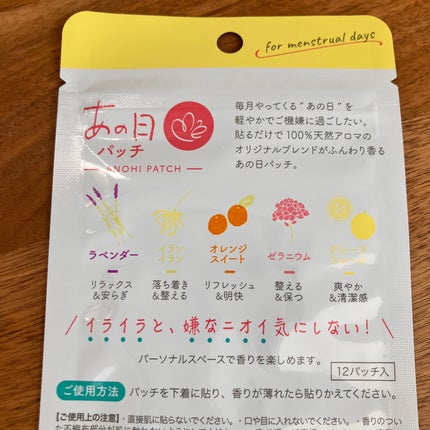 for menstrual days
あの日
パッチ
ANOHI PATCH
毎月やってくる"あの日"を
軽やかでご機嫌に過ごしたい。
貼るだけで100%天然アロマの
オリジナルブレンドがふんわり香る
あの日パッチ。
ラベンダー
リラックス
&安らぎ
イラン
イラン
落ち着き
&整える
オレンジ
スイート
リフレッシュ
&明快
ゼラニウム
整える
&保つ
爽やか
&清潔感
イライラと、嫌なニオイ気にしない!
パーソナルスペースで香りを楽しめます。
12パッチ入
ご使用方法 パッチを下着に貼り、香りが薄れたら貼りかえてください。
【ご使用上の注意】・直接肌に貼らないでください。・口や目に入れないでください。・香りのつい